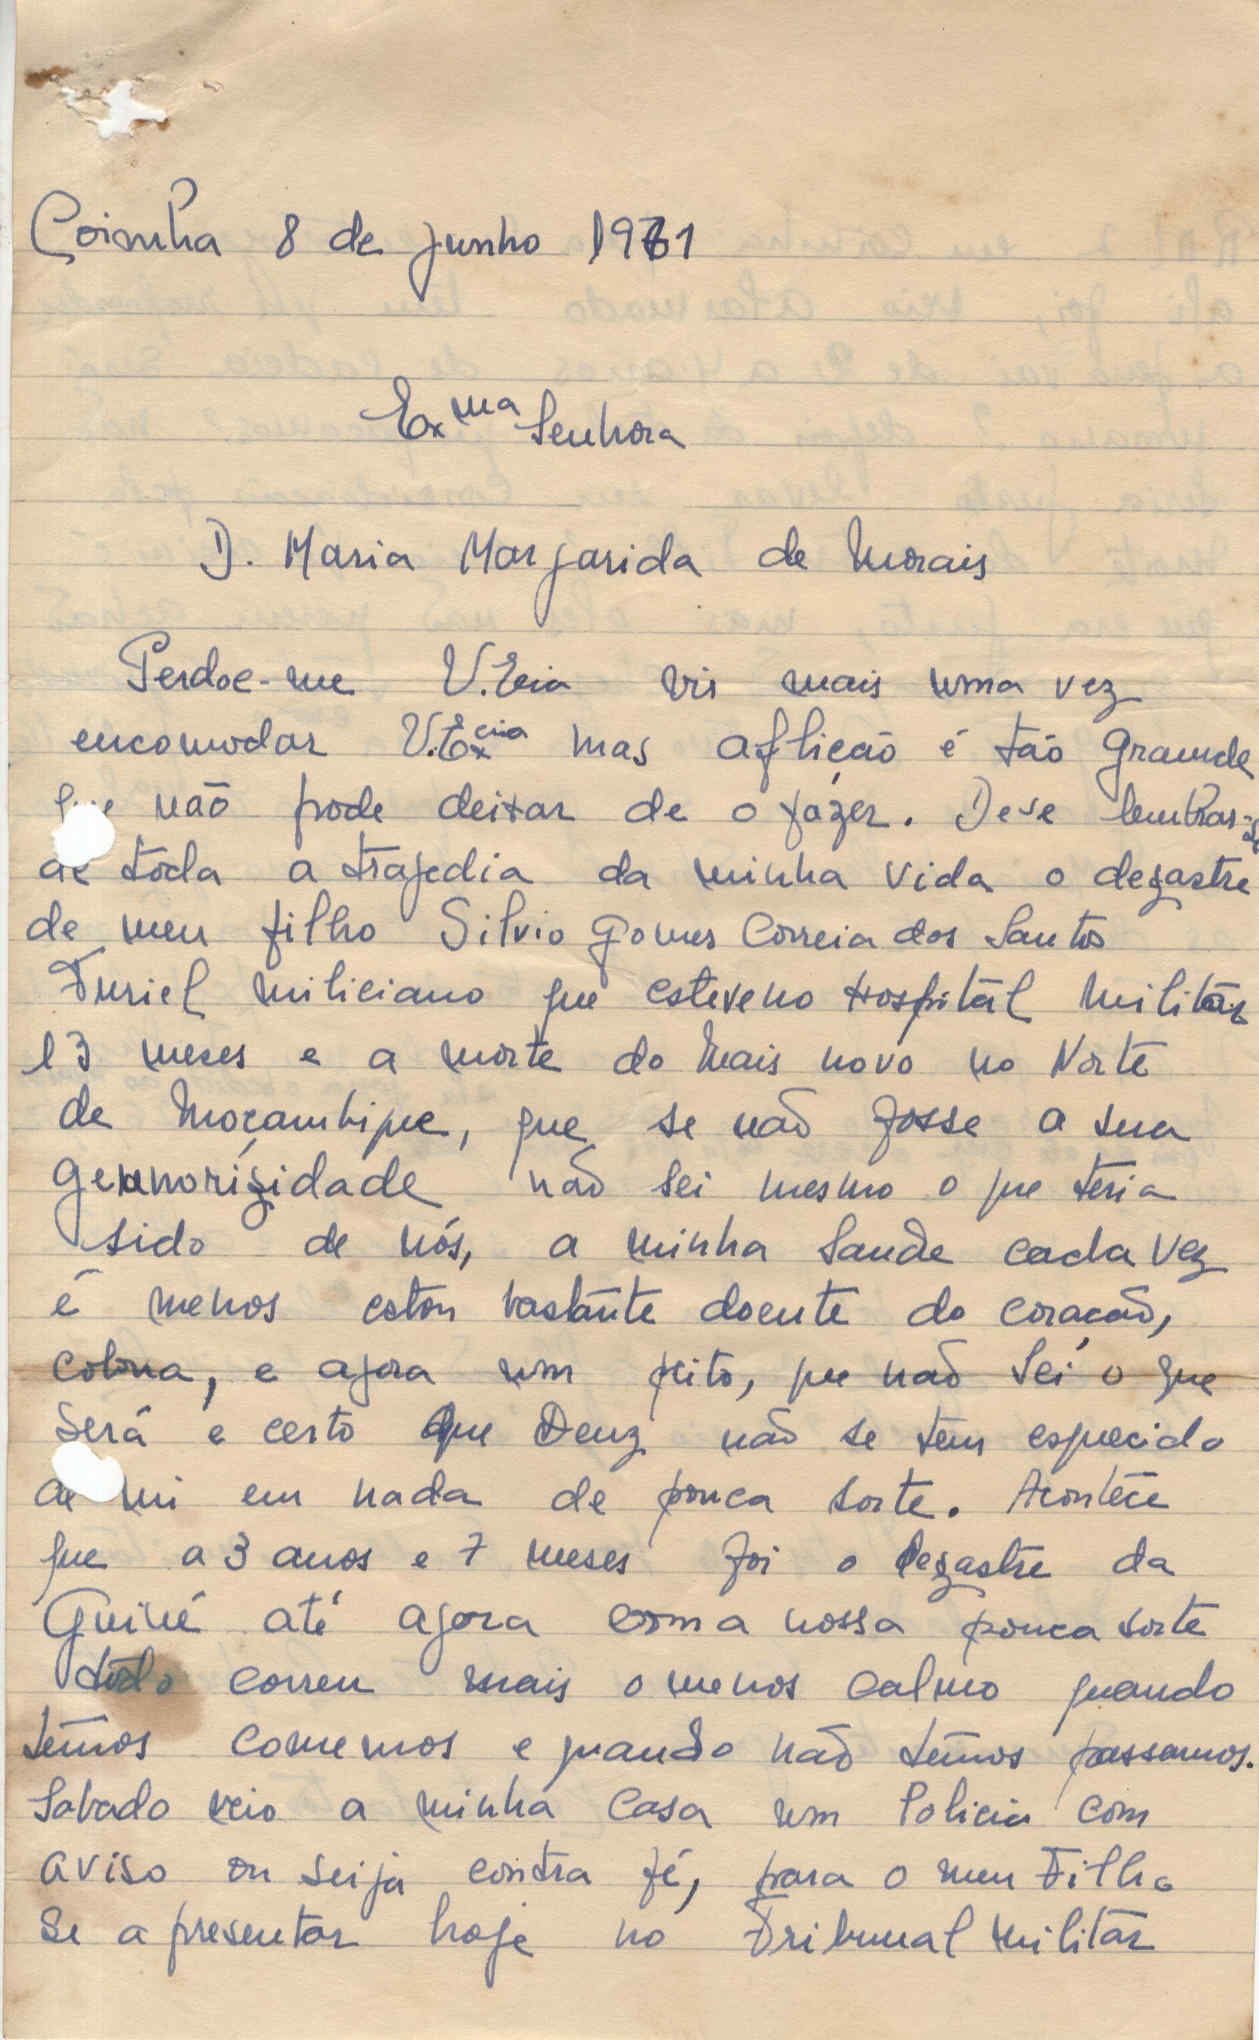 Coimbra 8 de junho 1971
Exma Senhora
D. Maria Margarida de Morais
Perdoe-me V. Exia vir mais uma vez
encomodar V. Excia mas aflicão é tão grande
que não pode deixar de o fázer. Deve lembrar-se
de toda a trajedia da minha vida o dezastre
de meu filho Silvio Gomes Correia dos Santos
Furiel miliciano que esteve no Hospital Militar
13 meses e a morte do mais novo no Norte
de Moçambique, que se não fosse a sua
não sei mesmo o que teria
sido de nós, a minha saude cada vez
é menos estou bastante doente do coracão,
coluna, e agora um peito, que não sei o que
Será e certo que Deuz não se tem esquecido
de mi em nada de pouca sorte. Acontece
que a 3 anos e 7 meses foi o dezastre da
Guiné até agora com a nossa pouca sorte
tudo correu mais o menos calmo quando
temos comemos e quando não temos passamos.
Sabado veio a minha casa um Policia com
aviso ou seija contra fé, para o meu Filho
se apresentar hoje no Tribunal Militar